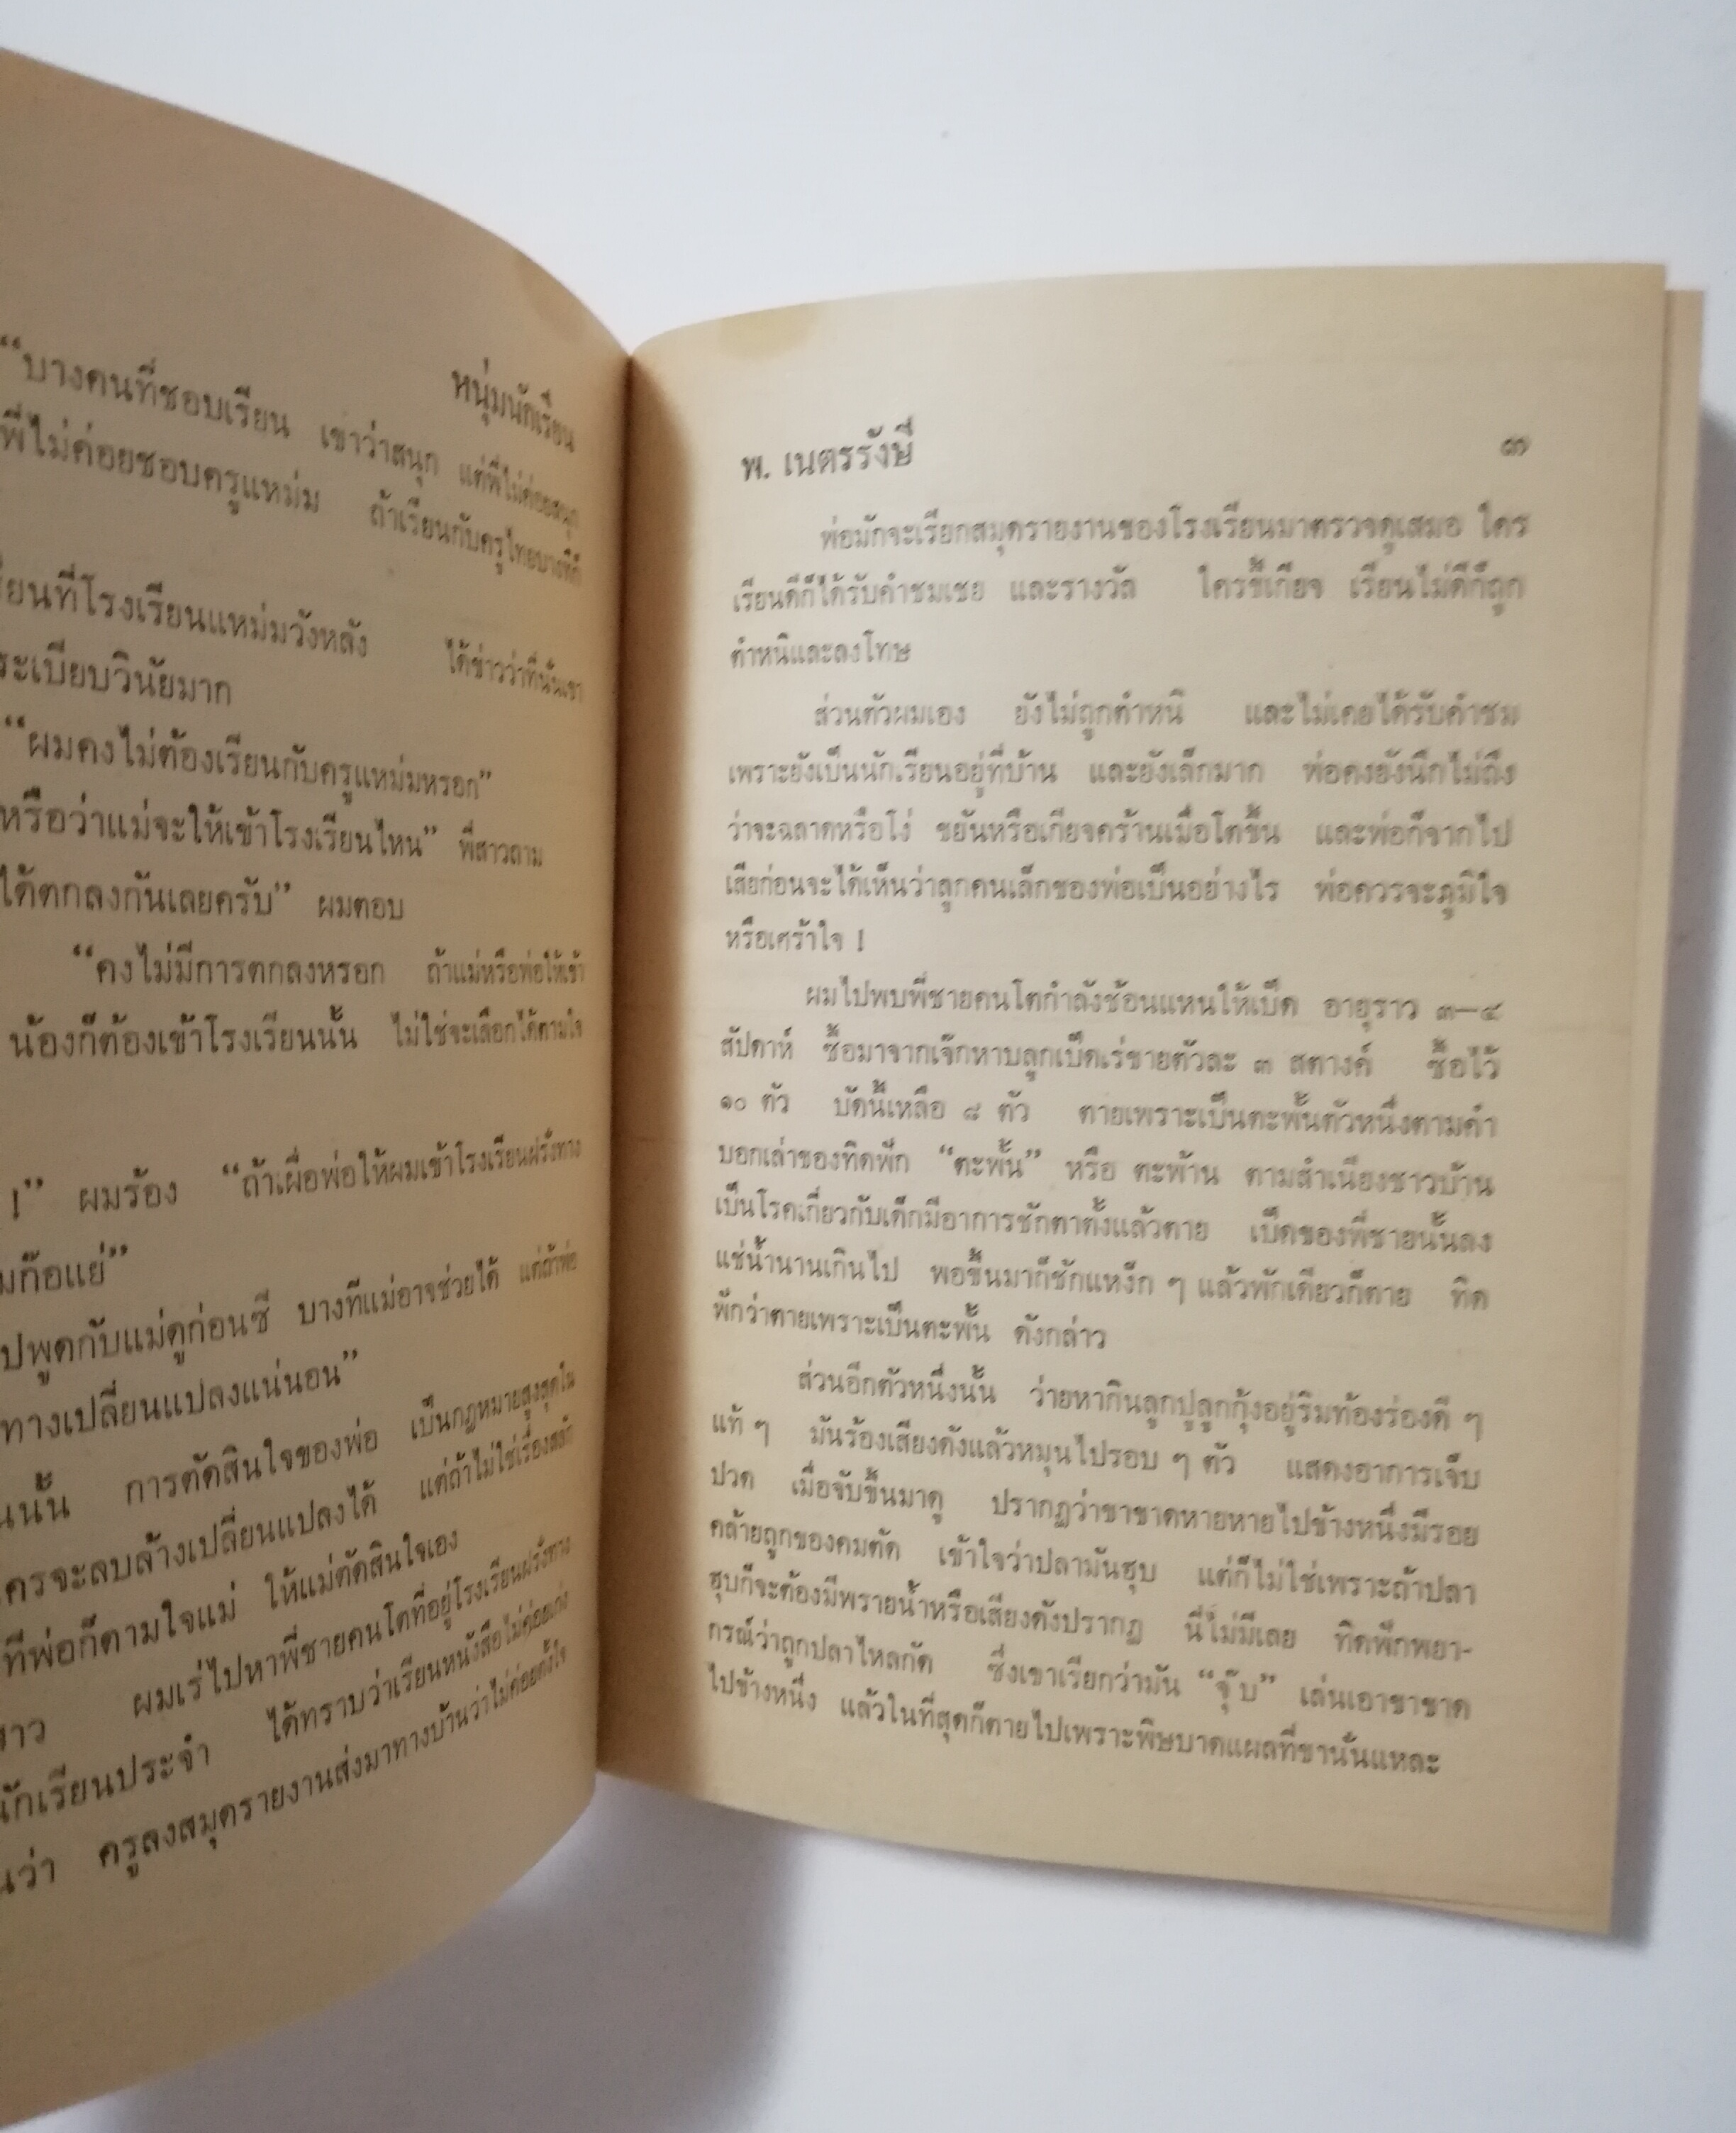 หนุ่มนักเรียน
“บางคนที่ชอบเรียน เขาว่าสนุก แต่พี่ไม่ค่อยสนุก
พี่ไม่ค่อยชอบครูแหม่ม ถ้าเรียนกับครูไทยบางทีก็
เรียนที่โรงเรียนแหม่มวังหลัง ได้ข่าวว่าที่นั่นเขา
ระเบียบวินัยมาก
“ผมคงไม่ต้องเรียนกับครูแหม่มหรอก”
หรือว่าแม่จะให้เข้าโรงเรียนไหน” พี่สาวถาม
ได้ตกลงกันเลยครับ” ผมตอบ
“คงไม่มีการตกลงหรอก ถ้าแม่หรือพ่อให้เข้า
น้องก็ต้องเข้าโรงเรียนนั้น ไม่ใช่จะเลือกได้ตามใจ
!” ผมร้อง “ถ้าเผื่อพ่อให้ผมเข้าโรงเรียนฝรั่งทาง
มก๊อแย่”
ปพูดกับแม่ดูก่อนซี บางทีแม่อาจช่วยได้ แต่ถ้าพ่อ
ทางเปลี่ยนแปลงแน่นอน”
นนั้น การตัดสินใจของพ่อ เป็นกฎหมายสูงสุดใน
ครจะลบล้างเปลี่ยนแปลงได้ แต่ถ้าไม่ใช่เรื่องสลัก
ทีพ่อก็ตามใจแม่ ให้แม่ตัดสินใจเอง
าว ผมเร่ไปหาพี่ชายคนโตที่อยู่โรงเรียนฝรั่งทาง
นักเรียนประจำ ได้ทราบว่าเรียนหนังสือไม่ค่อยเก่ง
นว่า ครูลงสมุดรายงานส่งมาทางบ้านว่าไม่ค่อยตั้งใจ
พ. เนตรรังษี ๓๗
พ่อมักจะเรียกสมุดรายงานของโรงเรียนมาตรวจดูเสมอ ใคร
เรียนดีก็ได้รับคำชมเชย และรางวัล ใครขี้เกียจ เรียนไม่ดีก็ถูก
ตำหนิและลงโทษ
ส่วนตัวผมเอง ยังไม่ถูกตำหนิ และไม่เคยได้รับคำชม
เพราะยังเป็นนักเรียนอยู่ที่บ้าน และยังเล็กมาก พ่อคงยังนึกไม่ถึง
ว่าจะฉลาดหรือโง่ ขยันหรือเกียจคร้านเมื่อโตขึ้น และพ่อก็จากไป
เสียก่อนจะได้เห็นว่าลูกคนเล็กของพ่อเป็นอย่างไร พ่อควรจะภูมิใจ
หรือเศร้าใจ !
ผมไปพบพี่ชายคนโตกำลังช้อนแหนให้เป็ด อายุราว ๓—๔
สัปดาห์ ซื้อมาจากเจ๊กหาบลูกเป็ดเร่ขายตัวละ ๓ สตางค์ ซื้อไว้
๑๐ ตัว บัดนี้เหลือ ๘ ตัว ตายเพราะเป็นตะพั้นตัวหนึ่งตามคำ
บอกเล่าของทิดฟัก “ตะพั้น” หรือ ตะพ้าน ตามสำเนียงชาวบ้าน
เป็นโรคเกี่ยวกับเด็กมีอาการชักตาตั้งแล้วตาย เป็ดของพี่ชายนั้นลง
แช่น้ำนานเกินไป พอขึ้นมาก็ชักแหง็ก ๆ แล้วพักเดียวก็ตาย ทิด
ฟักว่าตายเพราะเป็นตะพั้น ดังกล่าว
ส่วนอีกตัวหนึ่งนั้น ว่ายหากินลูกปูลูกกุ้งอยู่ริมท้องร่องดี ๆ
แท้ ๆ มันร้องเสียงดังแล้วหมุนไปรอบ ๆ ตัว แสดงอาการเจ็บ
ปวด เมื่อจับขึ้นมาดู ปรากฏว่าขาขาดหายหายไปข้างหนึ่งมีรอย
คล้ายถูกของคมตัด เข้าใจว่าปลามันฮุบ แต่ก็ไม่ใช่เพราะถ้าปลา
ฮุบก็จะต้องมีพรายน้ำหรือเสียงดังปรากฏ นี่ไม่มีเลย ทิดฟักพยา-
กรณ์ว่าถูกปลาไหลกัด ซึ่งเขาเรียกว่ามัน “จุ๊บ” เล่นเอาขาขาด
ไปข้างหนึ่ง แล้วในที่สุดก็ตายไปเพราะพิษบาดแผลที่ขานั่นแหละ